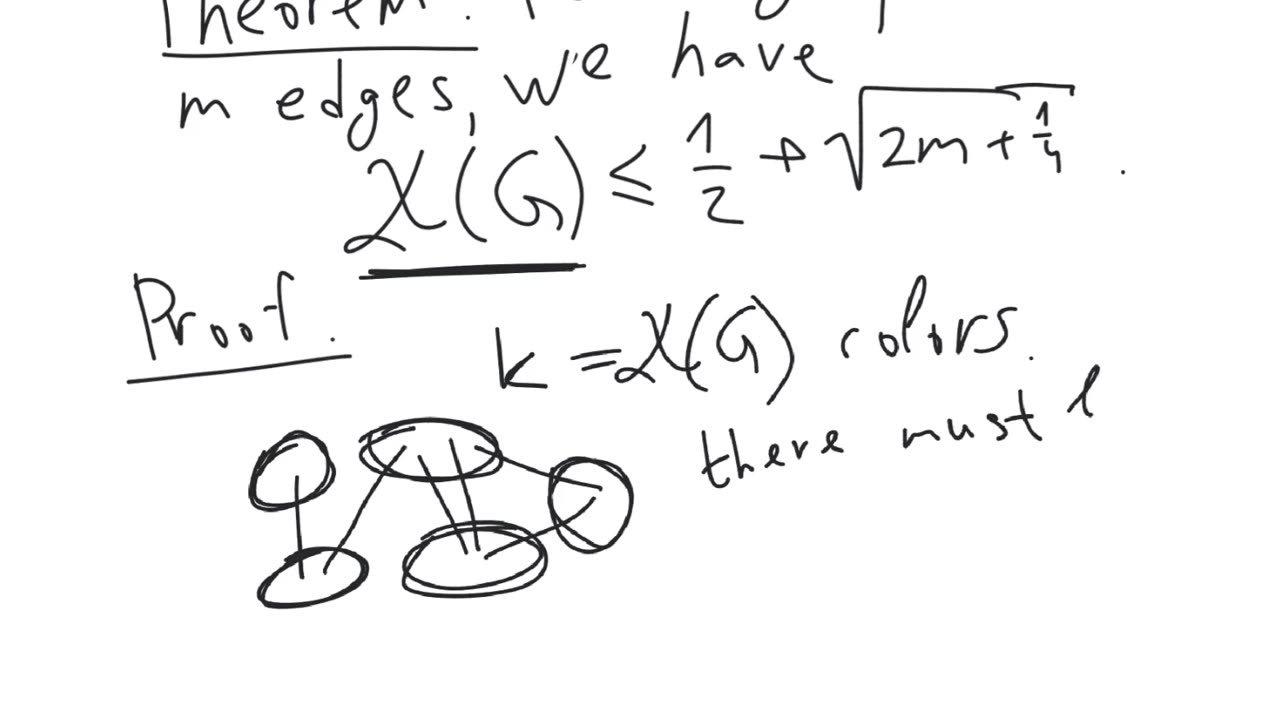 Theorem.
m edges, we have
χ(G) ≤ 1/2 + √(2m + 1/4) .
Proof.
k = χ(G) colors.
there must